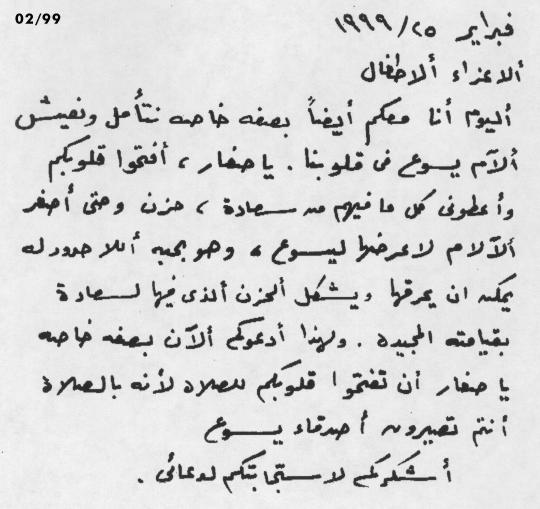 02/99
فبراير ٢٥/ ١٩٩٩
ألاعزاء ألاطفال
أليوم أنا معكم أيضاً بصفه خاصه نتأمل ونعيش
ألآم يسوع فى قلوبنا . يا صغار ، أفتحوا قلوبكم
وأعطونى كل ما فيهم من سعادة ، حزن وحتى أصغر
ألآلام لاعرضها ليسوع ، وهو بحبه أللا حدود له
يمكن ان يحرقها ويشكل ألحزن ألذى فيها لسعادة
بقيامته المجيده . ولهذا أدعوكم ألآن بصفه خاصه
يا صغار أن تفتحوا قلوبكم للصلاه لأنه بالصلاة
أنتم تصيرون أصدقاء يسوع
أشكركم لاستجابتكم لدعائى .